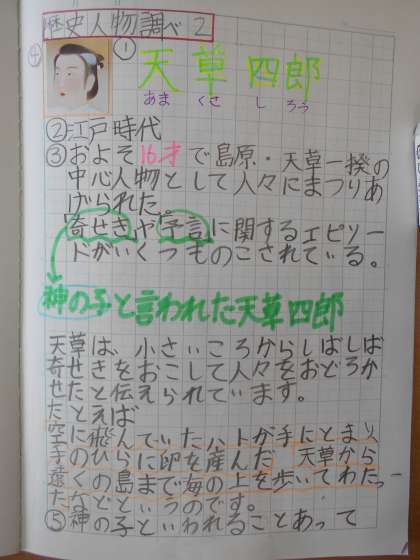 歴史人物調べ 2
④ ① 天草四郎
あま くさ し ろう
②江戸時代
③およそ16才で島原・天草一揆の
中心人物として人々にまつりあ
げられた。
寄せきや予言に関するエピソー
ドがいくつものこされている。
神の子と言われた天草四郎
天草は、小さいころからしばしば
寄せきをおこして人々をおどろか
せたと伝えられています。
たとえば
空に飛んでいたハトが手にとまり、
手のひらに卵を産んだ 天草から
遠くの島まで海の上を歩いてわたっ
たなどというのです。
⑤神の子といわれることあって